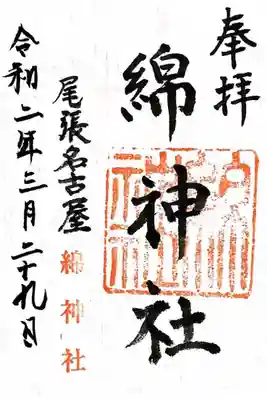 奉拝
綿神社
尾張名古屋
綿神社
令和二年三月二十九日